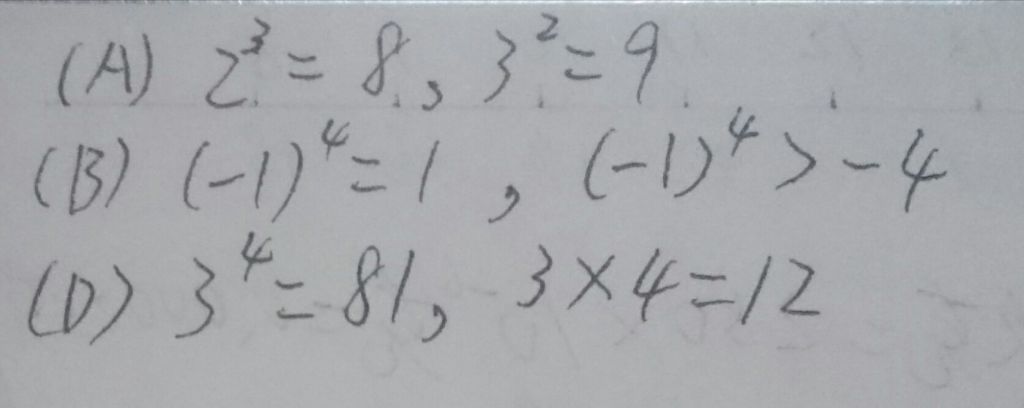 (A) 2³ = 8, 3² = 9
(B) (-1)⁴ = 1, (-1)⁴ > -4
(D) 3⁴ = 81, 3×4=12